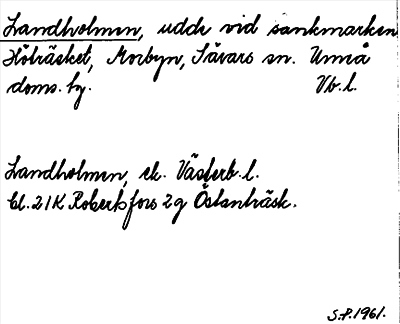 Landholmen, udde vid sankmarken
Höträsket, Morbyn, Sävars sn. Umeå
doms. hg. Vb. l.
Landholmen, ek. Västerb. l.
bl. 21K Robertsfors 2g Östanträsk.
S.P. 1961.